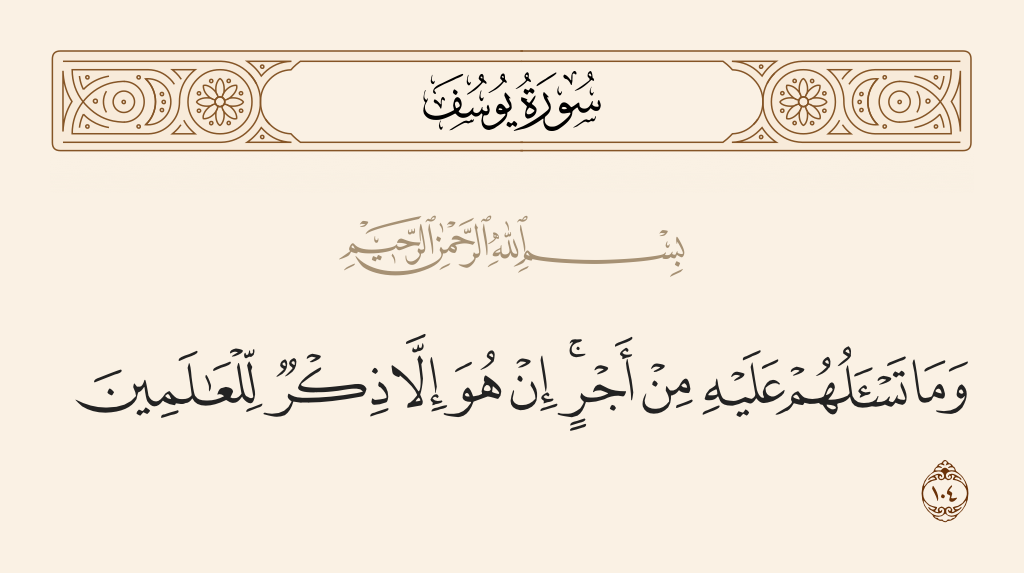 سُورَةُ يُوسُفَ
بِسْمِ ٱللَّهِ ٱلرَّحْمَٰنِ ٱلرَّحِيمِ
وَمَا تَسْـَٔلُهُمْ عَلَيْهِ مِنْ أَجْرٍ ۚ إِنْ هُوَ إِلَّا ذِكْرٌ لِّلْعَـٰلَمِينَ
١٠٤